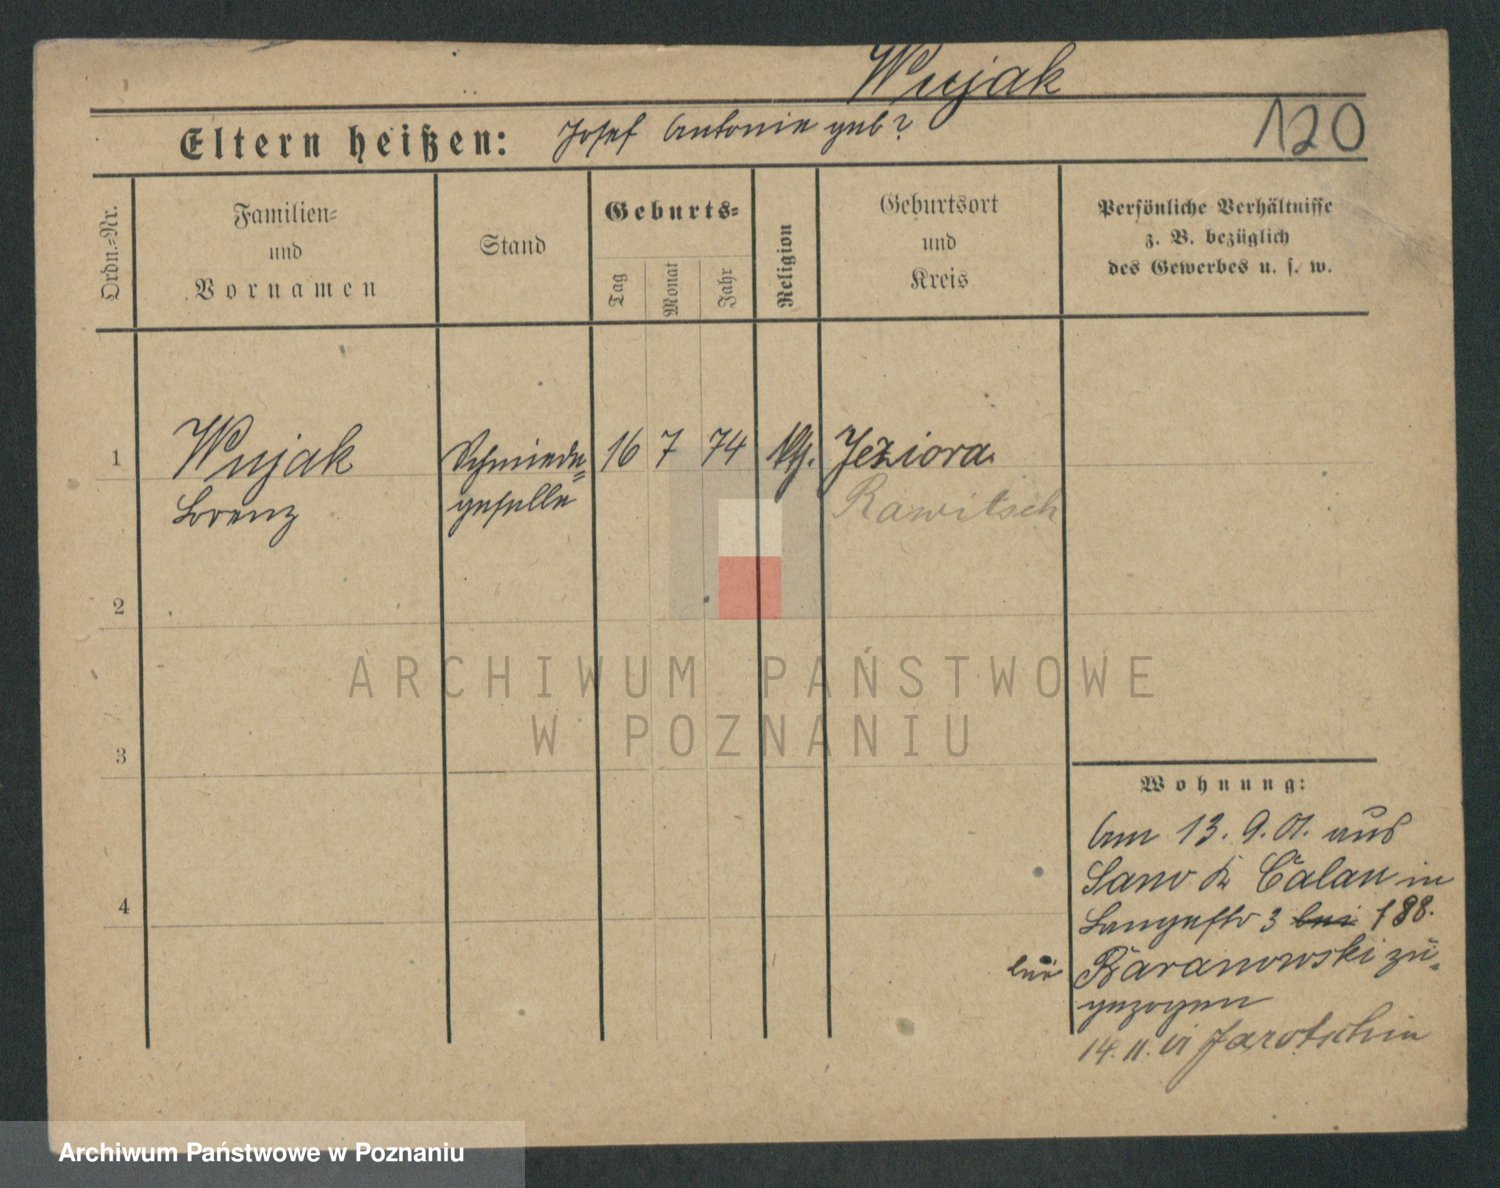 Wujak
120
Eltern heißen: Josef Antonie geb?
Ordn.=Nr.
Familien=
und
Vornamen
Stand
Geburts=
Tag
Monat
Jahr
Religion
Geburtsort
und
Kreis
Persönliche Verhältnisse
z. B. bezüglich
des Gewerbes u. s. w.
1 Wujak Schmiede= 16 7 74 Jeziora
Lorenz geselle Rawitsch
2
ARCHIWUM PAŃSTWOWE
W POZNANIU
3
Wohnung:
Am 13. 9. 01. aus
Calau in
4
Langestr 3 bei 188.
bei Baranowski zu=
gezogen
14. 11. Jarotschin
Archiwum Państwowe w Poznaniu